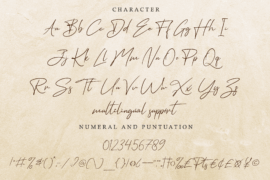 CHARACTER
Aa Bb Cc Dd Ee Ff Gg Hh Ii
Jj Kk Ll Mm Nn Oo Pp Qq
Rr Ss Tt Uu Vv Ww Xx Yy Zz
multilingual support
NUMERAL AND PUNTUATION
0123456789